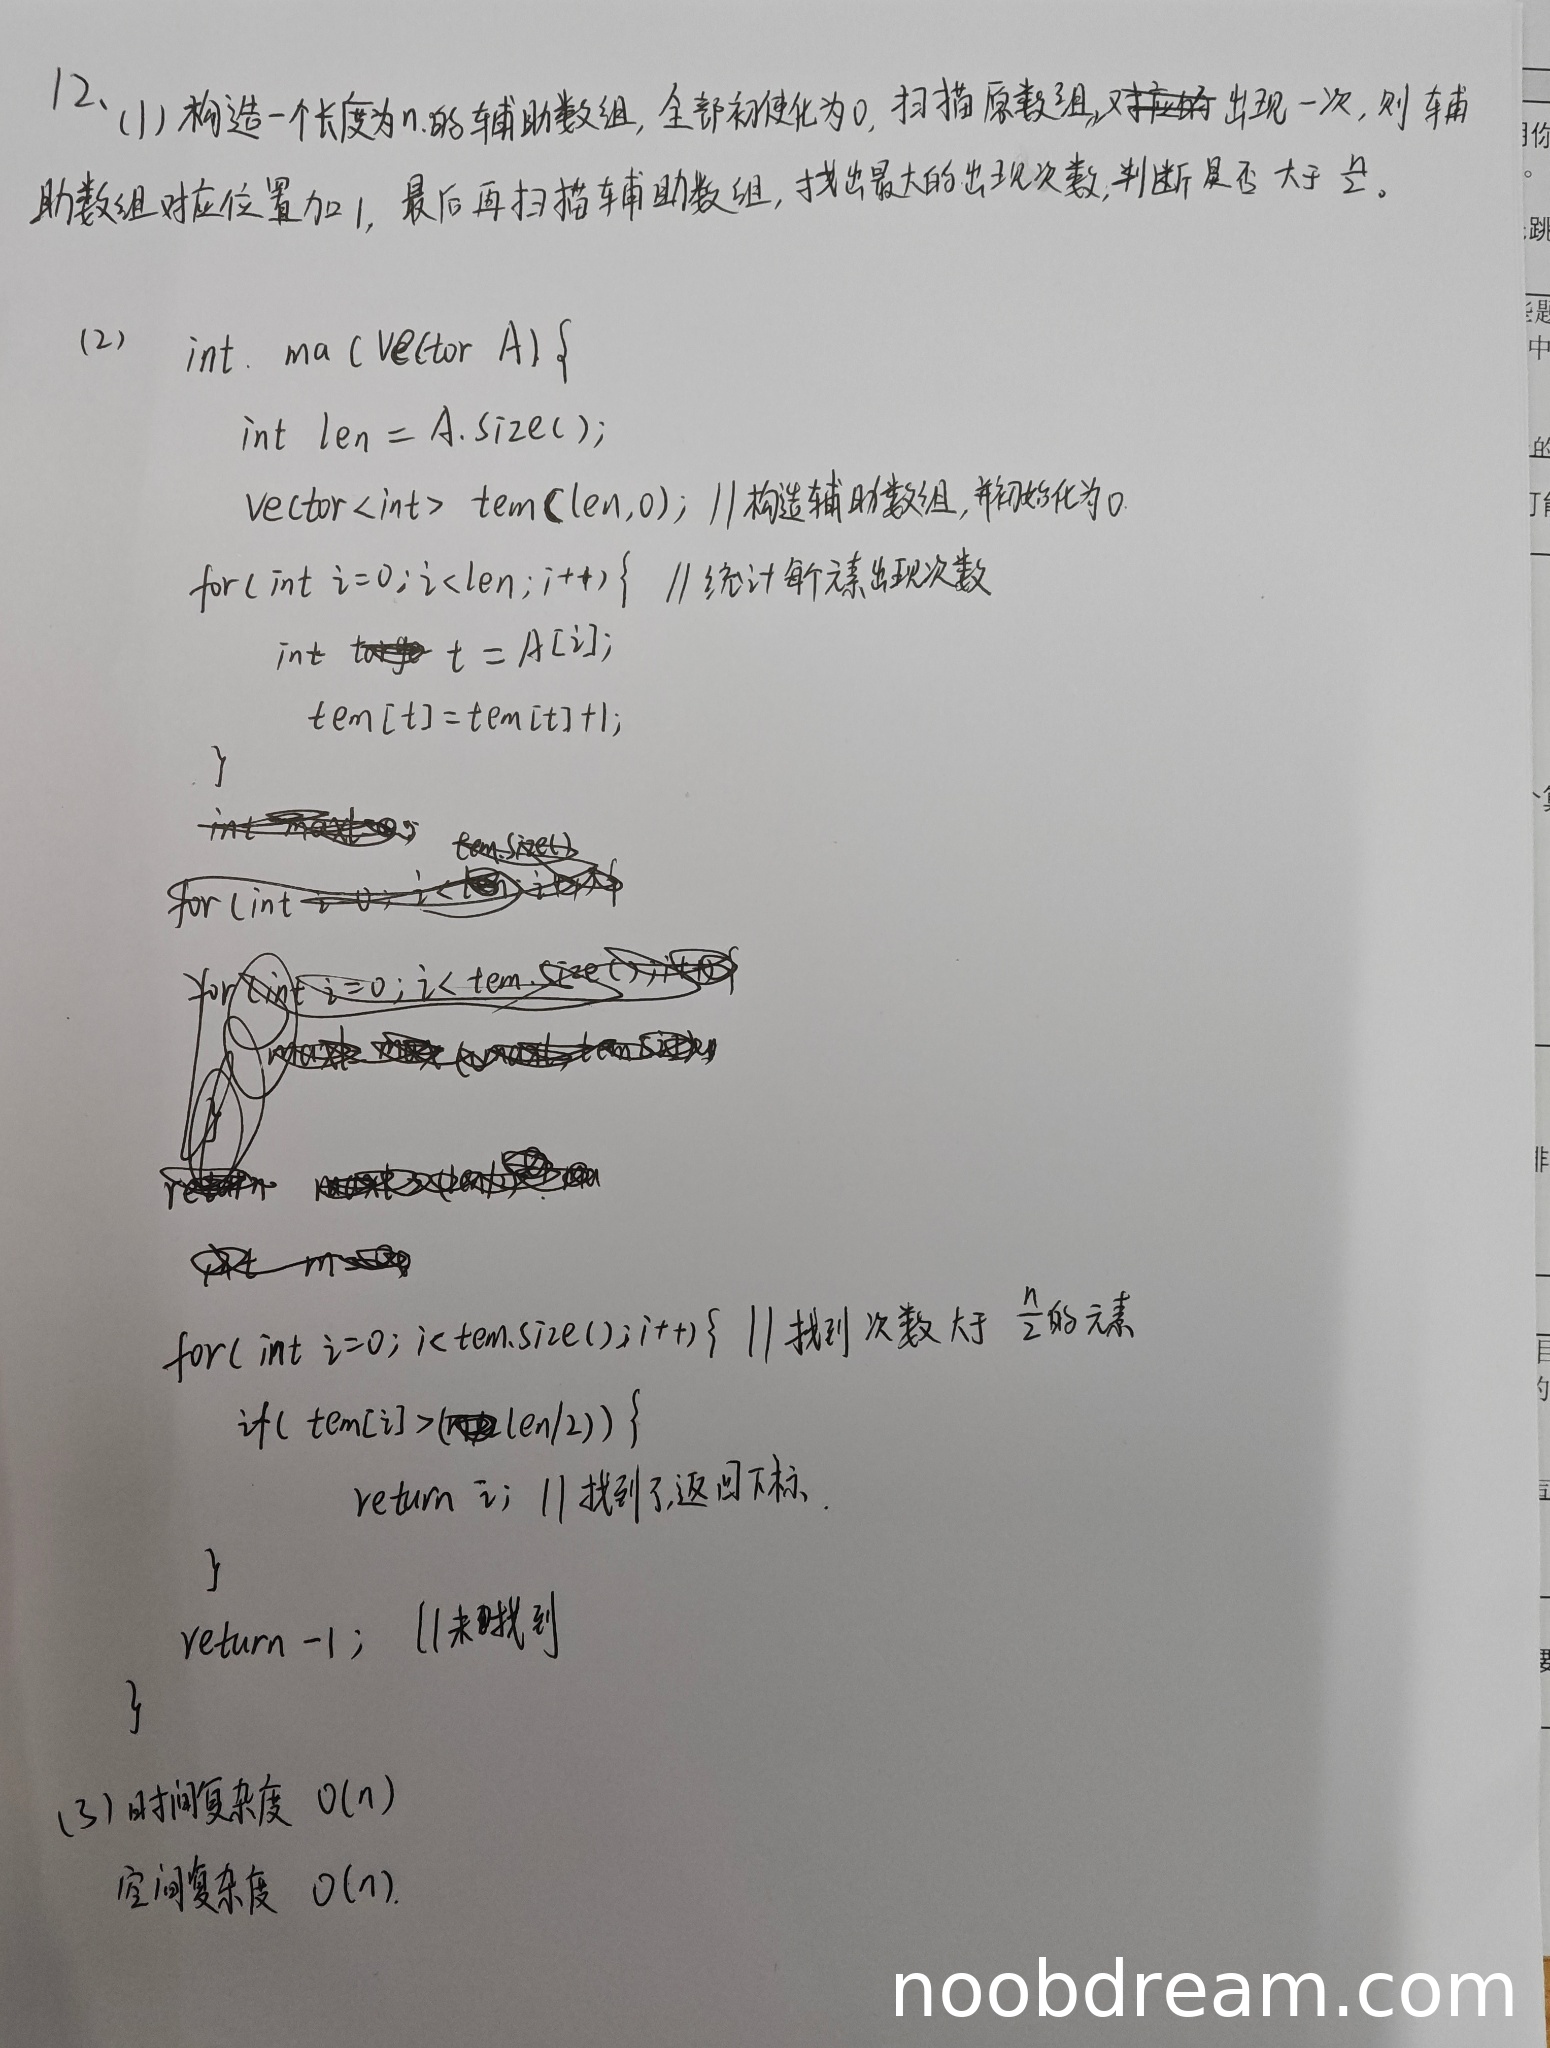 12、(1)构造一个长度为n的辅助数组,全部初使化为0,扫描原数组,出现一次,则辅
助数组对应位置加1,最后再扫描辅助数组,找出最大的出现次数,判断是否大于n/2。
(2) int ma(vector A){
int len = A.size();
vector<int> tem(len,0); //构造辅助数组,并初始化为0.
for(int i=0;i<len;i++){ //统计每个元素出现次数
int t = A[i];
tem[t]=tem[t]+1;
}
for(int i=0; i<tem.size();i++){ //找到次数大于n/2的元素
if(tem[i]>(len/2)){
return i; //找到了,返回下标.
}
return -1; //未找到
}
(3)时间复杂度 O(n)
空间复杂度 O(n).
noobdream.com